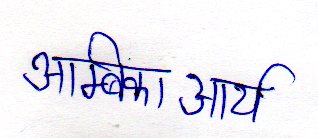 अम्बिका आर्य